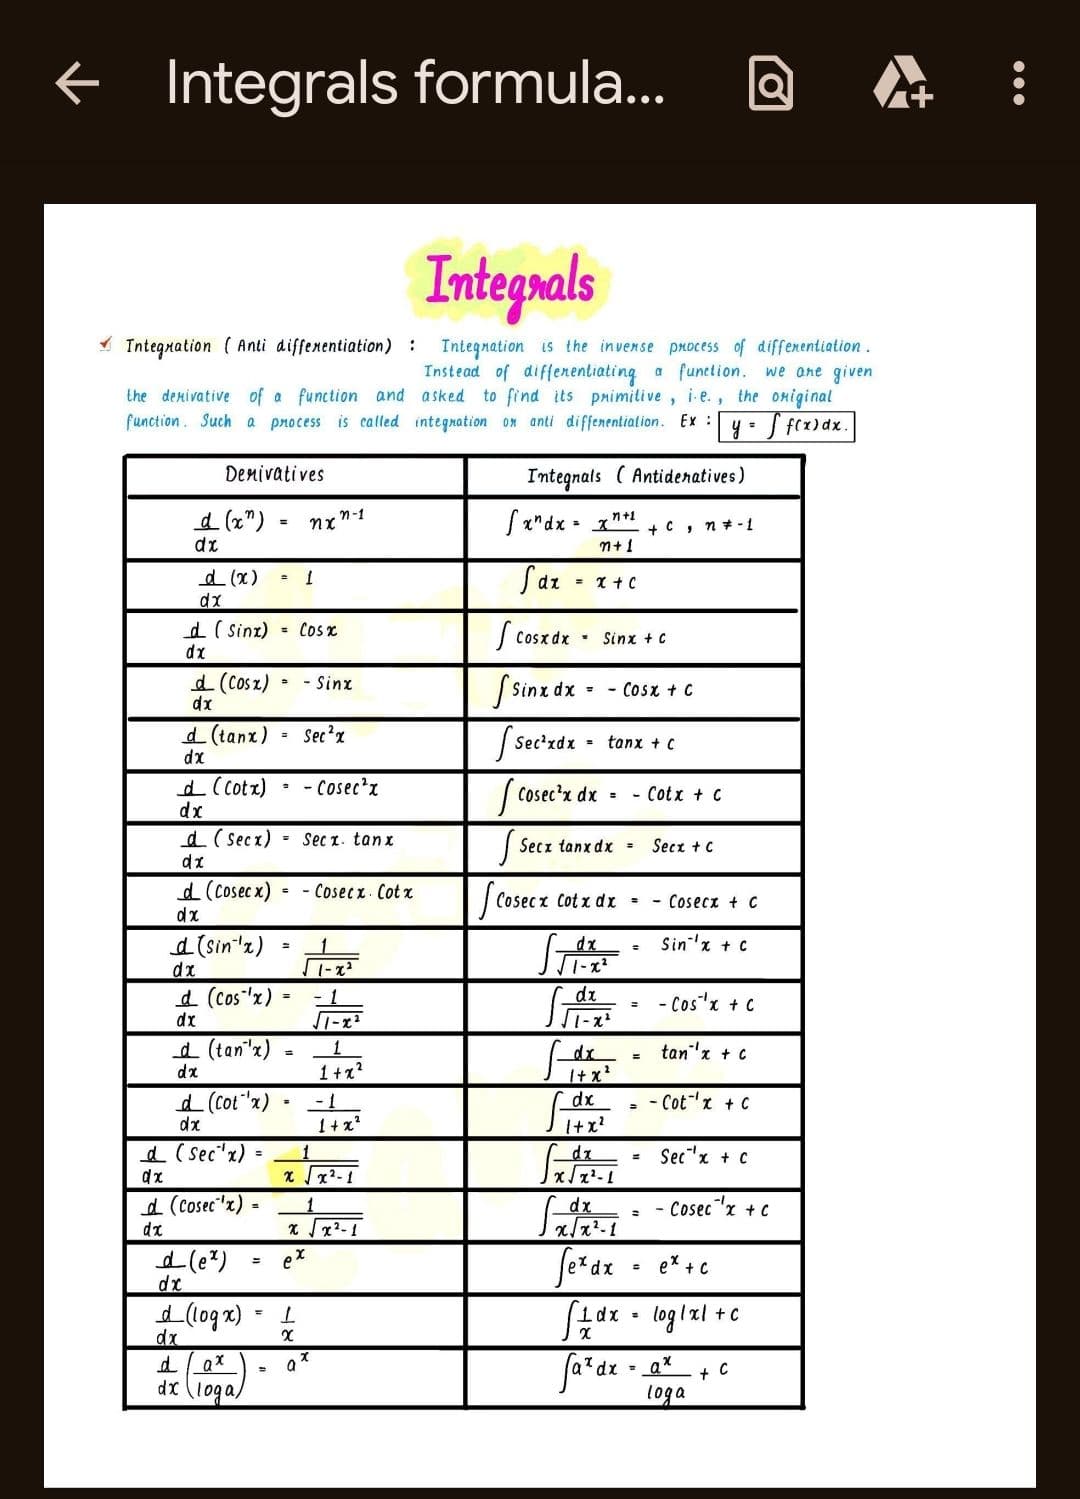 Integrals formula...
Integrals
Integration ( Anti differentiation) : Integration is the inverse process of differentiation.
Instead of differentiating a function. we are given
the derivative of a function and asked to find its primitive, i.e., the original
function. Such a process is called integration or anti differentiation. Ex : y = ∫ f(x)dx.
Derivatives | Integrals ( Antideratives)
d/dx (xⁿ) = nxⁿ⁻¹ | ∫xⁿdx = xⁿ⁺¹/n+1 + c , n ≠ -1
d/dx (x) = 1 | ∫dx = x + c
d/dx (sinx) = Cosx | ∫Cosxdx = Sinx + c
d/dx (Cosx) = - Sinx | ∫Sinx dx = - Cosx + c
d/dx (tanx) = Sec²x | ∫Sec²xdx = tanx + c
d/dx (Cotx) = - Cosec²x | ∫Cosec²x dx = - Cotx + c
d/dx (Secx) = Secx. tanx | ∫Secx tanxdx = Secx + c
d/dx (Cosecx) = - Cosecx. Cotx | ∫Cosecx Cotx dx = - Cosecx + c
d/dx (sin⁻¹x) = 1/√1-x² | ∫dx/√1-x² = Sin⁻¹x + c
d/dx (Cos⁻¹x) = -1/√1-x² | ∫dx/√1-x² = - Cos⁻¹x + c
d/dx (tan⁻¹x) = 1/1+x² | ∫dx/1+x² = tan⁻¹x + c
d/dx (Cot⁻¹x) = -1/1+x² | ∫dx/1+x² = - Cot⁻¹x + c
d/dx (Sec⁻¹x) = 1/x√x²-1 | ∫dx/x√x²-1 = Sec⁻¹x + c
d/dx (cosec⁻¹x) = 1/x√x²-1 | ∫dx/x√x²-1 = - Cosec⁻¹x + c
d/dx (eˣ) = eˣ | ∫eˣdx = eˣ + c
d/dx (logx) = 1/x | ∫1/x dx = log|x| + c
d/dx (aˣ/loga) = aˣ | ∫aˣdx = aˣ/loga + c